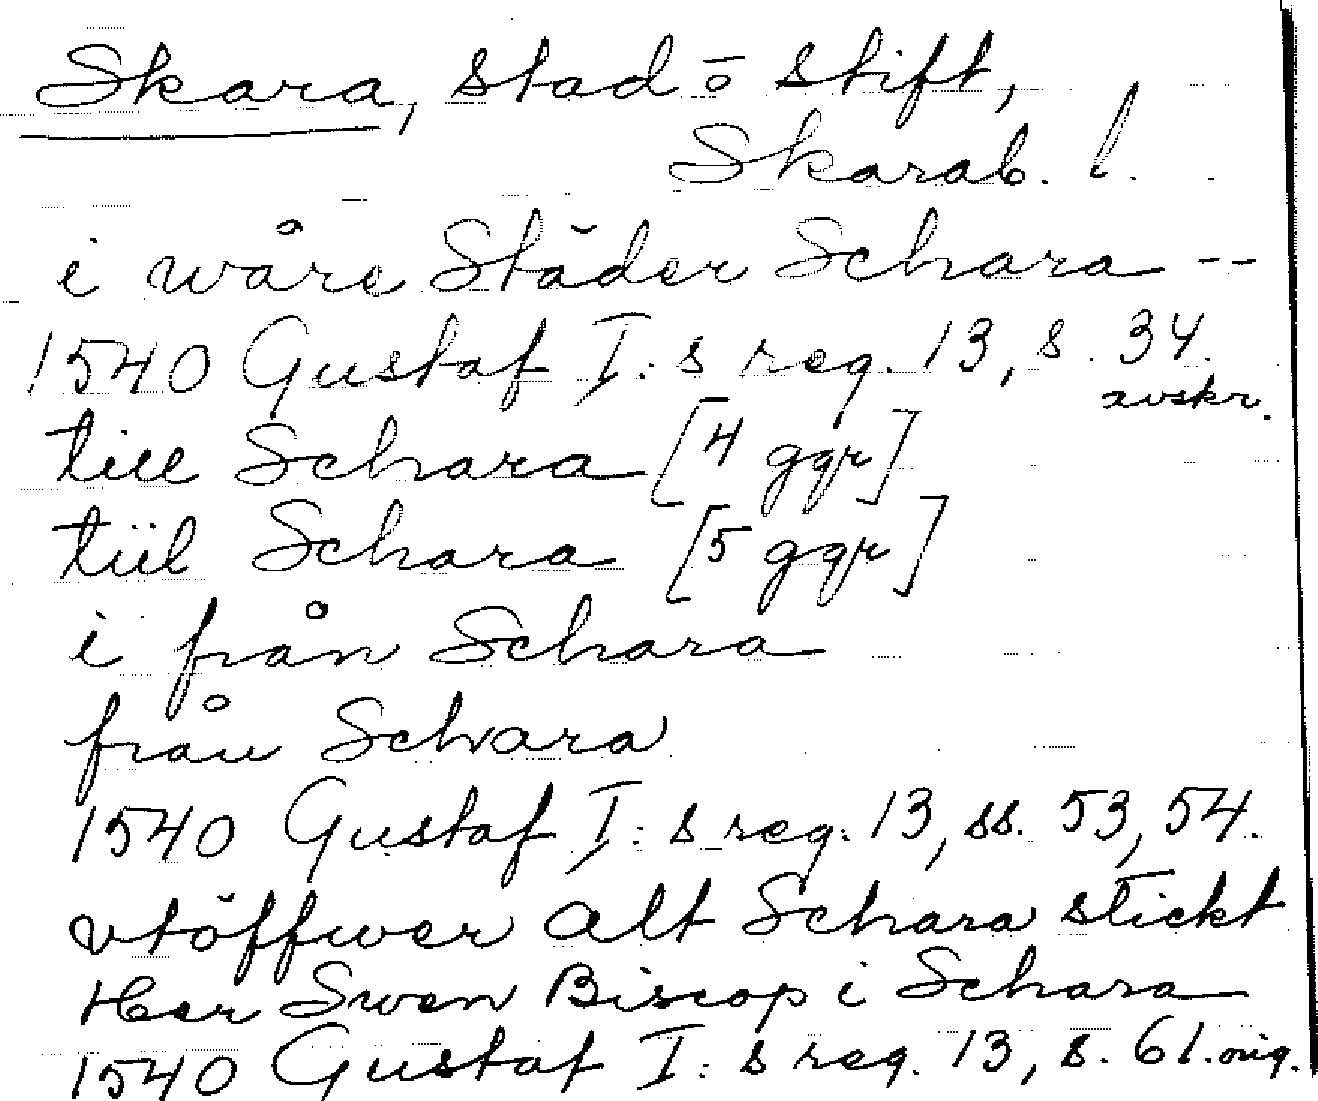 Skara, stad o stift,
Skarab. l.
i wåre Städer Schara --
1540 Gustaf I:s reg. 13, s. 34.
avskr.
till Schara [4 ggr]
tiil Schara [5 ggr]
i från Schara
från Schara
1540 Gustaf I:s reg. 13, ss. 53, 54.
vtöffwer alt Schara stickt
Her Swen Biscop i Schara
1540 Gustaf I:s reg. 13, s. 61. orig.